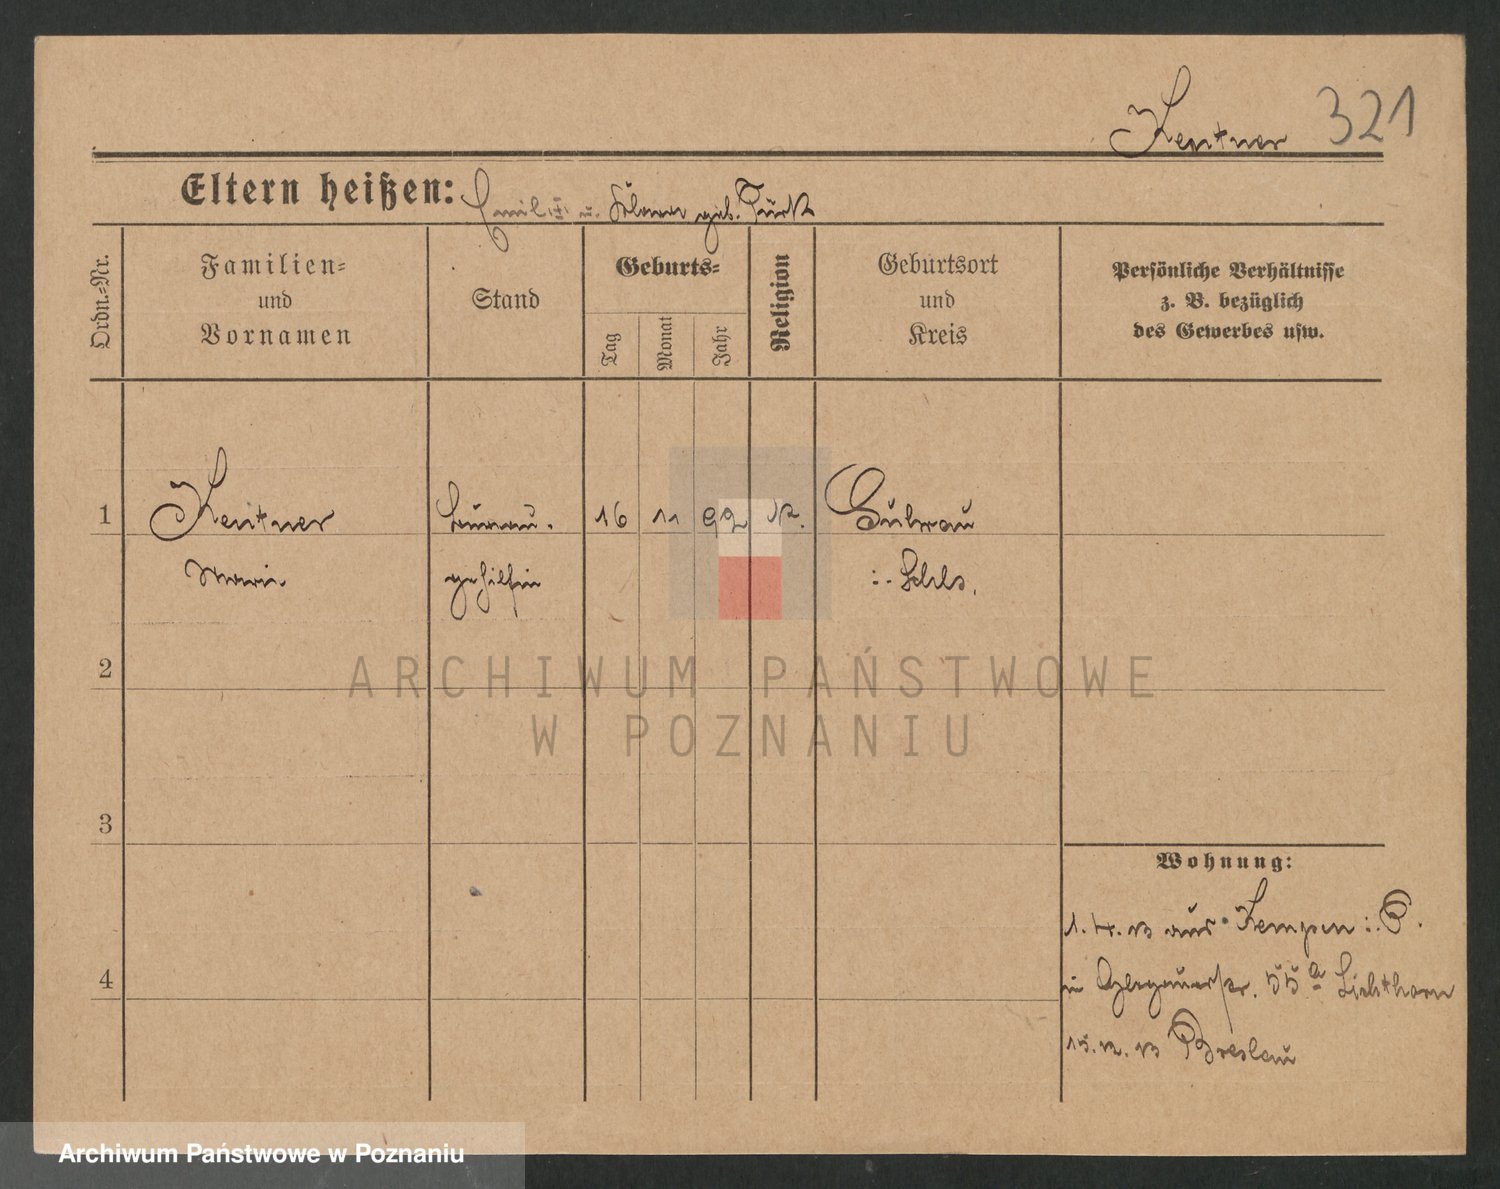 Kentner 321
Eltern heißen: Emil u. Selma geb. Türk
Ordn.=Nr.
Familien=
und
Vornamen
Stand
Geburts=
Tag
Monat
Jahr
Religion
Geburtsort
und
Kreis
Persönliche Verhältnisse
z. B. bezüglich
des Gewerbes usw.
1 Kentner 16 11 92 K. Guhrau
Marie gehilfin i. Schls.
2
3
4
Wohnung:
1.4.13 aus Kempen i. P.
in Glogauerstr. 55a Lichthorn
15.12.13 Breslau
ARCHIWUM PAŃSTWOWE
W POZNANIU
Archiwum Państwowe w Poznaniu